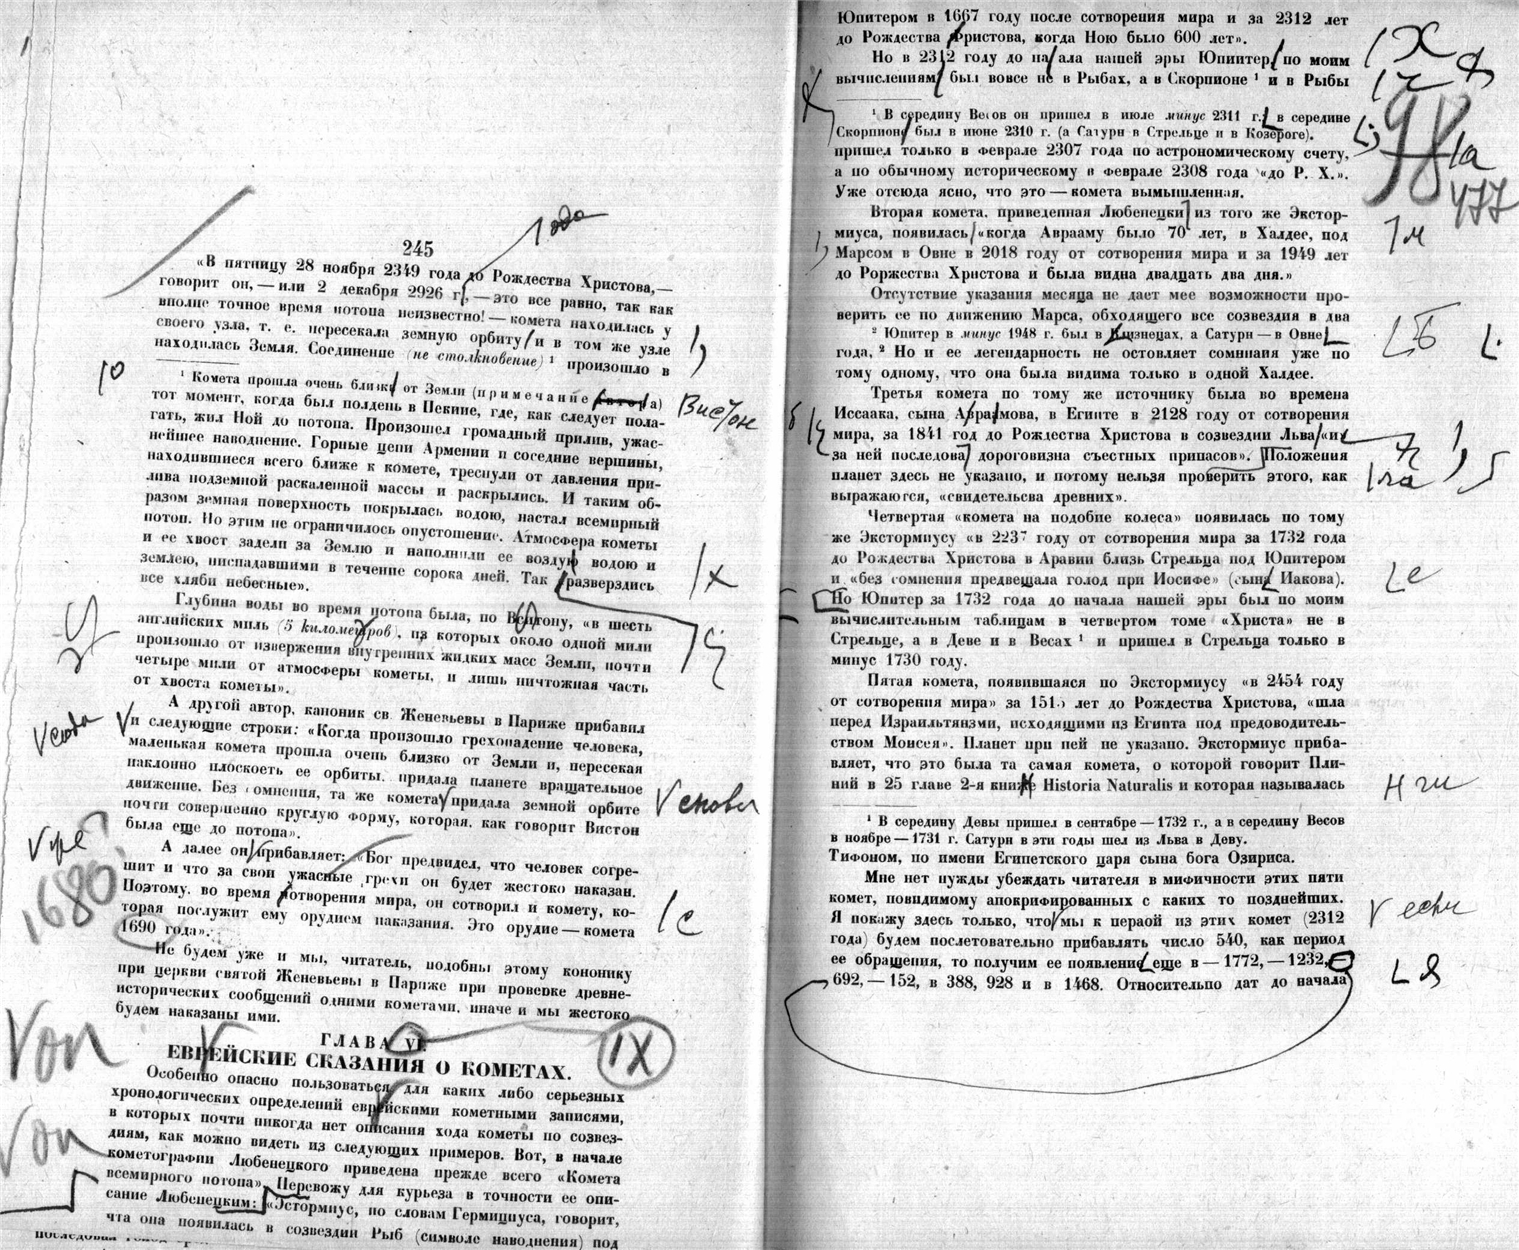 245
1 ода
«В пятницу 28 ноября 2349 года до Рождества Христова,—
говорит он,— или 2 декабря 2926 г., — это все равно, так как
вполне точное время потопа неизвестно! — комета находилась у
своего узла, т. е. пересекала земную орбиту и в том же узле
находилась Земля. Соединение (не столкновение) ¹ произошло в
¹ Комета прошла очень близко от Земли (примечание автора)
ю
Вистон
тот момент, когда был полдень в Пекине, где, как следует пола-
гать, жил Ной до потопа. Произошел громадный прилив, ужас-
нейшее наводнение. Горные цепи Армении и соседние вершины,
находившиеся всего ближе к комете, треснули от давления при-
лива подземной раскаленной массы и раскрылись. И таким об-
разом земная поверхность покрылась водою, настал всемирный
потоп. Но этим не ограничилось опустошение. Атмосфера кометы
и ее хвост задели за Землю и наполнили ее воздух водою и
землею, ниспадавшими в течение сорока дней. Так разверздись
все хляби небесные».
х
Глубина воды во время потопа была, по Вситону, «в шесть
английских миль (5 километров), из которых около одной мили
произошло от извержения внутренних жидких масс Земли, почти
четыре мили от атмосферы кометы, и лишь ничтожная часть
от хвоста кометы».
А другой автор, каноник св. Женевьевы в Париже прибавил
V сюда
и следующие строки: «Когда произошло грехопадение человека,
маленькая комета прошла очень близко от Земли и, пересекая
наклонно плоскеть ее орбиты, придала планете вращательное
движение. Без сомнения, та же комета придала земной орбите
V снова
почти совершенно круглую форму, которая, как говорит Вистон
была еще до потопа».
А далее он прибавляет: «Бог предвидел, что человек согре-
шит и что за свои ужасные грехи он будет жестоко наказан.
Поэтому, во время сотворения мира, он сотворил и комету, ко-
торая послужит ему орудием наказания. Это орудие — комета
с
1680?
1690 года».
Не будем уже и мы, читатель, подобны этому кононику
при церкви святой Женевьевы в Париже при проверке древне-
исторических сообщений одними кометами, иначе и мы жестоко
будем наказаны ими.
ГЛАВА VI.
IX
ЕВРЕЙСКИЕ СКАЗАНИЯ О КОМЕТАХ.
Особенно опасно пользоваться для каких либо серьезных
хронологических определений еврейскими кометными записями,
в которых почти никогда нет описания хода кометы по созвез-
диям, как можно видеть из следующих примеров. Вот, в начале
кометографии Любенецкого приведена прежде всего «Комета
всемирного потопа». Перевожу для курьеза в точности ее опи-
сание Любенецким: «Эстормиус, по словам Гермициуса, говорит,
чта она появилась в созвездии Рыб (символе наводнения) под
Юпитером в 1667 году после сотворения мира и за 2312 лет
до Рождества Фристова, когда Ною было 600 лет».
Х
Но в 2312 году до на ала нашей эры Юпиитер по моим
ч
вычислениям был вовсе не в Рыбах, а в Скорпионе ¹ и в Рыбы
98
¹ В середину Весов он пришел в июле минус 2311 г. в середине
Скорпион был в июне 2310 г. (а Сатурн в Стрельце и в Козероге).
а
477
пришел только в феврале 2307 года по астрономическому счету,
а по обычному историческому в феврале 2308 года «до Р. Х.».
Уже отсюда ясно, что это — комета вымышленная.
Вторая комета, приведенная Любенецки из того же Экстор-
м
миуса, появилась «когда Аврааму было 70 лет, в Халдее, под
Марсом в Овне в 2018 году от сотворения мира и за 1949 лет
до Роржества Христова и была видна двадцать два дня.»
Отсутствие указания месяца не дает мее возможности про-
верить ее по движению Марса, обходящего все созвездия в два
² Юпитер в минус 1948 г. был в Близнецах, а Сатурн — в Овне
Б
года, ² Но и ее легендарность не остовляет сомниния уже по
тому одному, что она была видима только в одной Халдее.
Третья комета по тому же источнику была во времена
Иссаака, сына Авраамова, в Египте в 2128 году от сотворения
мира, за 1841 год до Рождества Христова в созвездии Льва «и
за ней последова дороговизна съестных припасов». Положения
ла
планет здесь не указано, и потому нельзя проверить этого, как
выражаются, «свидетельсва древних».
Четвертая «комета на подобие колеса» появилась по тому
же Экстормиусу «в 2237 году от сотворения мира за 1732 года
до Рождества Христова в Аравии близь Стрельца под Юпитером
и «без сомнения предвещала голод при Иосифе» (сын Иакова).
е
Но Юпитер за 1732 года до начала нашей эры был по моим
вычислительным таблицам в четвертом томе «Христа» не в
Стрельце, а в Деве и в Весах ¹ и пришел в Стрельца только в
минус 1730 году.
Пятая комета, появившаяся по Экстормиусу «в 2454 году
от сотворения мира» за 1515 лет до Рождества Христова, «шла
перед Израильтянзми, исходящими из Египта под предоводитель-
ством Моисея». Планет при ней не указано. Экстормиус приба-
вляет, что это была та самая комета, о которой говорит Пли-
ний в 25 главе 2-я книже Historia Naturalis и которая называлась
¹ В середину Девы пришел в сентябре — 1732 г., а в середину Весов
в ноябре — 1731 г. Сатурн в эти годы шел из Льва в Деву.
Тифоном, по имени Египетского царя сына бога Озириса.
Мне нет нужды убеждать читателя в мифичности этих пяти
комет, повидимому апокрифированных с каких то позднейших.
Я покажу здесь только, что мы к пераой из этих комет (2312
V если
года) будем послетовательно прибавлять число 540, как период
ее обращения, то получим ее появление еще в — 1772, — 1232,
Я
692, — 152, в 388, 928 и в 1468. Относительно дат до начала